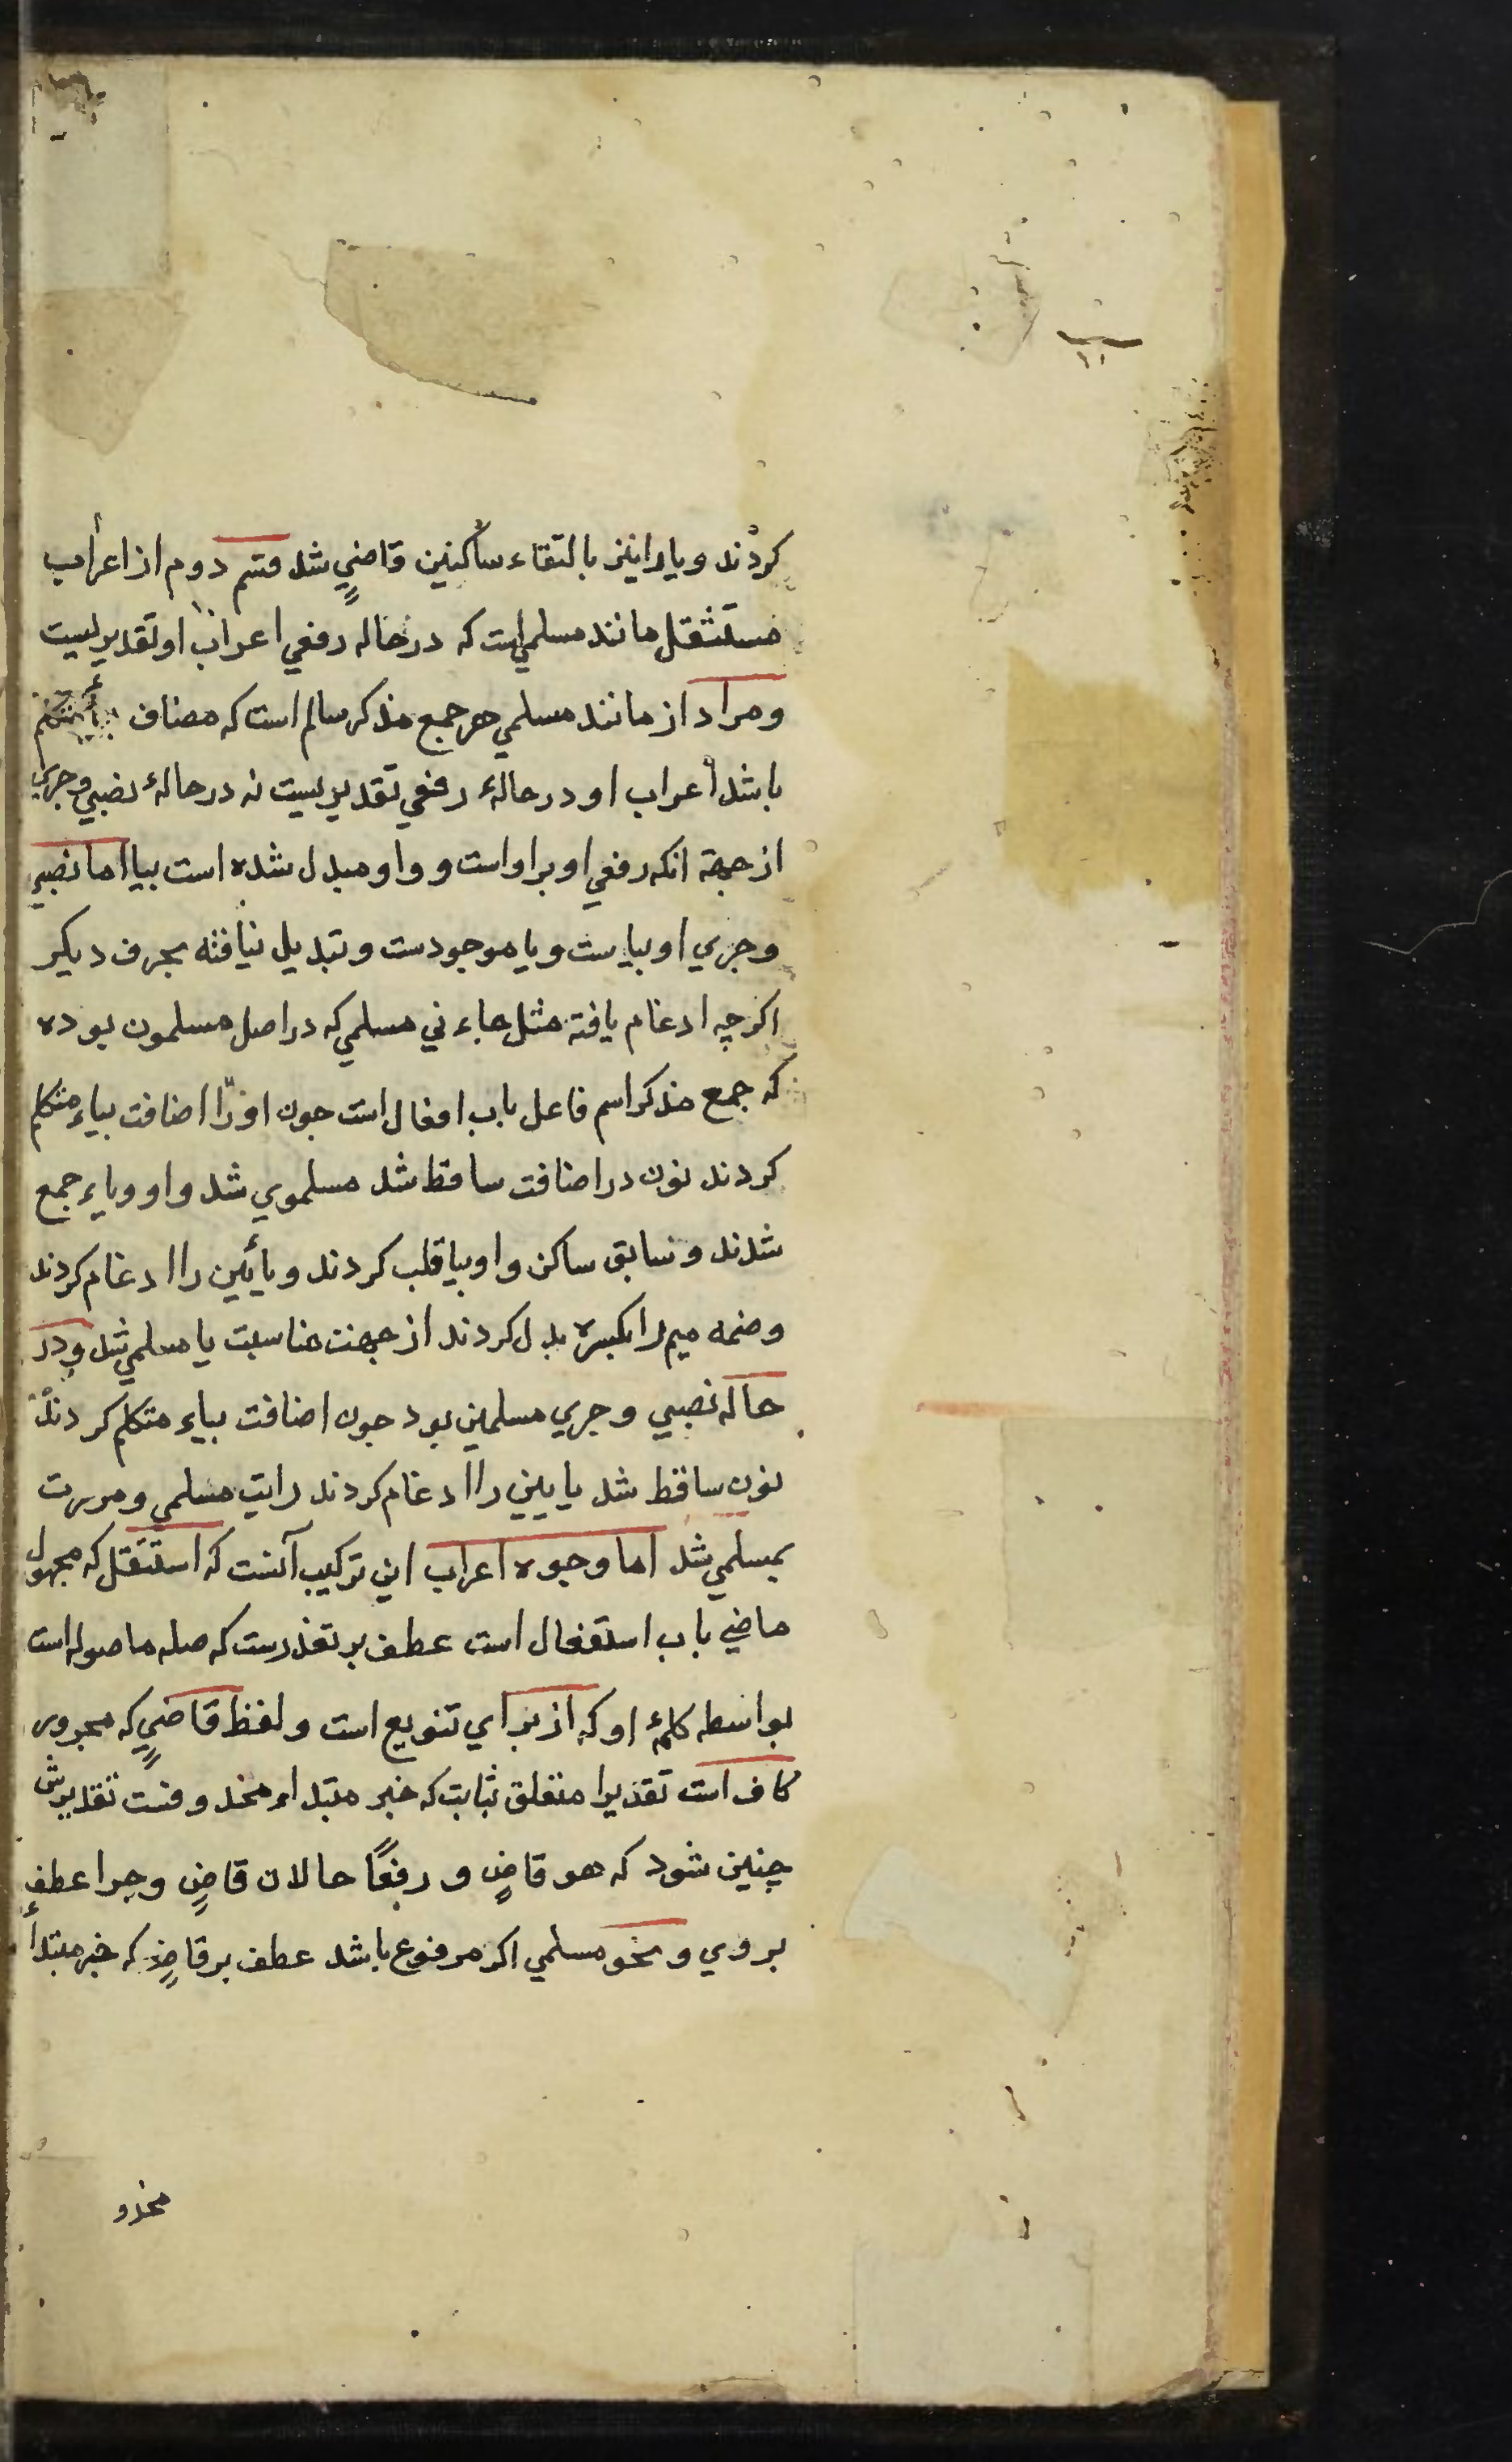 کردند ویا را نیز بالتقاء ساکنین قاضيٍ شد قسم دوم از اعراب
مستثقل مانند مسلمي است که در حاله رفعي اعراب او تقدیریست
ومراد از مانند مسلمي هر جمع مذکر سالم است که مضاف بیاء متکلم
باشد اعراب او در حالهٔ رفعي تقدیریست نه در حالهٔ نصبي وجري
از جهة انکه رفعي او براو است وواو مبدل شده است بیا اما نصبي
وجري او بیاست ویا موجودست وتبدیل نیافته بحرف دیکر
اکرچه ادغام یافته مثل جاءني مسلمي که در اصل مسلمون بوده
که جمع مذکر اسم فاعل باب افعال است جون او را اضافت بیاء متکلم
کردند نون در اضافت ساقط شد مسلموي شد واو ویاء جمع
شدند وسابق ساکن واو بیا قلب کردند ویائین را ادغام کردند
وضمه میم را بکسره بدل کردند از جهت مناسبت یا مسلمي شد ودر
حاله نصبي وجري مسلمین بود جون اضافت بیاء متکلم کردند
نون ساقط شد یایین را ادغام کردند رایت مسلمي ومررت
بمسلمي شد اما وجوه اعراب این ترکیب آنست که استثقل که مجهول
ماضي باب استفعال است عطف بر تعذرست که صله ما صوله است
بواسطه کلمهٔ او که از برای تنویع است ولفظ قاضيٍ که مجرور
کاف است تقدیرا متعلق بثابت که خبر مبتداء محذوفست تقدیرش
چنین شود که هو قاضٍ ورفعًا حالان قاضٍ وجرا عطف
بر وي ونحو مسلمي اکر مرفوع باشد عطف بر قاضٍ که خبر مبتدأ
محذو